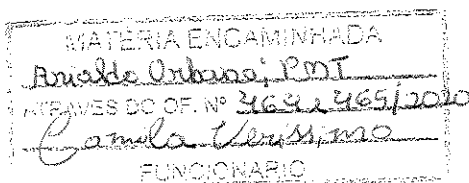 MATÉRIA ENCAMINHADA
Arialdo Urbano; PMT
ATRAVES DO OF. Nº 464 e 465/2020
Camila Veríssimo
FUNCIONARIO